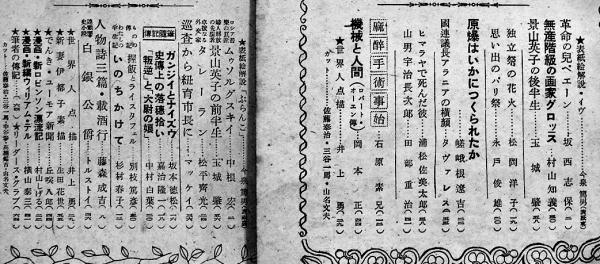 ★表紙絵解説・イヴ 今泉篤男
革命の兒ペエーン 坂西志保
無産階級の画家グロッス 村山知義
景山英子の後半生 玉城肇
独立祭の花火 松岡洋子
思い出のパリ祭 永戸俊雄
原爆はいかにつくられたか 嵯峨根遼吉
国連議長アラニアの横顔 タヴァレス
ヒマラヤで死んだ彼 浦松佐美太郎
山男宇治長次郎 田部重治
麻酔手術事始 石原素
機械と人間 岡本正
★世界人点描 井上勇
カット 佐藤泰治・三谷一馬・山名文夫
★表紙絵解説「ぶらんこ」 今泉篤男
ムゥソルグスキイ 中根宏
景山英子の前半生 玉城肇
タレーラン 松平齊光
巡査から紐育市長に マッケイ
随筆伝記
ガンジイとナイズウ 坂本徳松
史傳上の落穂拾い 嘉治隆一
「叛逆」と「大尉の娘」 中村白葉
握飯とライスタフェル 別枝篤彦
いのちかけて 杉村春子
人物誌三篇・載酒行 藤森成吉
白銀公爵 トルストイ
★世界人点描 井上勇
★新妻伊都子素描 生田花世
★でんき・ユーモア新聞 丘咲八郎
★漫画・新ロビンソン漂流記 村山しげる
★筆者の傳記 ★リーダースクラブ